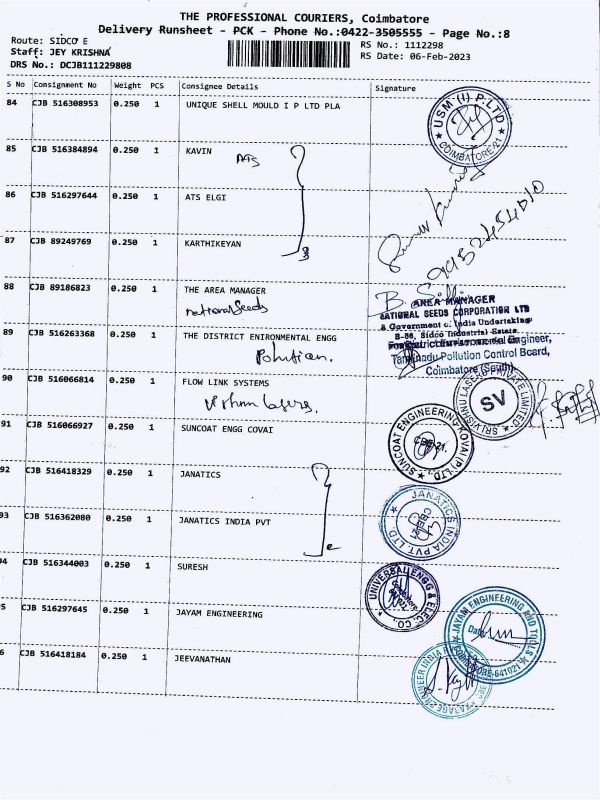 THE PROFESSIONAL COURIERS, Coimbatore
Delivery Runsheet - PCK - Phone No.:0422-3505555 - Page No.:8
Route: SIDCO E
RS No.: 1112298
Staff: JEY KRISHNA
RS Date: 06-Feb-2023
DRS No.: DCJB111229808
S No Consignment No Weight PCS Consignee Details Signature
84 CJB 516308953 0.250 1 UNIQUE SHELL MOULD I P LTD PLA
USM (I) P. LTD COIMBATORE-21
85 CJB 516384894 0.250 1 KAVIN
ATS
86 CJB 516297644 0.250 1 ATS ELGI
87 CJB 89249769 0.250 1 KARTHIKEYAN
88 CJB 89186823 0.250 1 THE AREA MANAGER
national Seeds
AREA MANAGER
NATIONAL SEEDS CORPORATION LTD
a Government of India Undertaking
B-86, Sidco Industrial Estate
89 CJB 516263368 0.250 1 THE DISTRICT ENIRONMENTAL ENGG
Engineer,
Tamilnadu Pollution Control Board,
Coimbatore (South)
90 CJB 516066814 0.250 1 FLOW LINK SYSTEMS
Vishnu Lasers.
SRI VISHNU LASERS PRIVATE LIMITED
SV
91 CJB 516066927 0.250 1 SUNCOAT ENGG COVAI
SUNCOAT ENGINEERING KOVAI (P) LTD
CBE-21.
92 CJB 516418329 0.250 1 JANATICS
93 CJB 516362080 0.250 1 JANATICS INDIA PVT
JANATICS INDIA PVT. LTD.
94 CJB 516344003 0.250 1 SURESH
UNIVERSAL ENGG & ELEC. CO
95 CJB 516297645 0.250 1 JAYAM ENGINEERING
JAYAM ENGINEERING AND TOOLS
COIMBATORE-641021
96 CJB 516418184 0.250 1 JEEVANATHAN